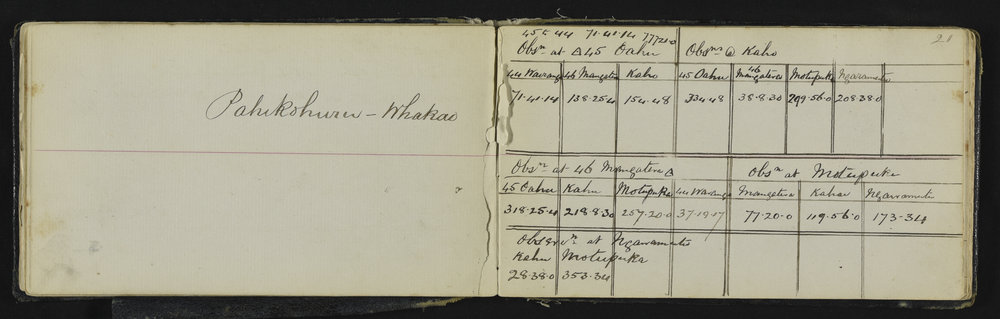 Pahikohuru - Whakao
21
45 to 44 71.41.14 77720.0
Obsn at △45 Oahu Obsns @ Kaho
44 Wairanga 46 Mangatera Kaho 45 Oahu 46 Mangatera Motupuka Ngaramatu
71.41.14 138.25.4 154.48 334.48 38.8.30 299.56.0 208.38.0
Obsn at 46 Mangatera △ Obsn at Motupuka
45 Oahu Kahu Motupuka 44 Wairanga Mangatera Kahu Ngaramatu
318.25.4 218.8.30 257.20.0 37.19.17 77.20.0 119.56.0 173.34
Observn at Ngaramatu
Kahu Motupuka
28.38.0 353.34